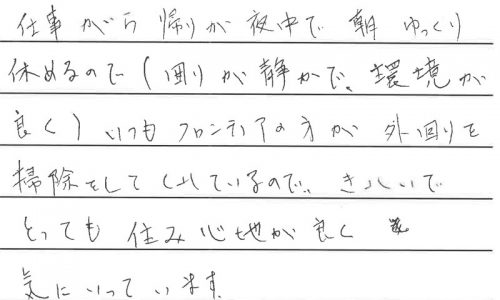 仕事がら帰りが夜中で朝ゆっくり
休めるので(回りが静かで、環境が
良く)いつもフロンティアの方が外回りを
掃除をしてくれているので、きれいで
とっても住み心地が良く
気にいっています。